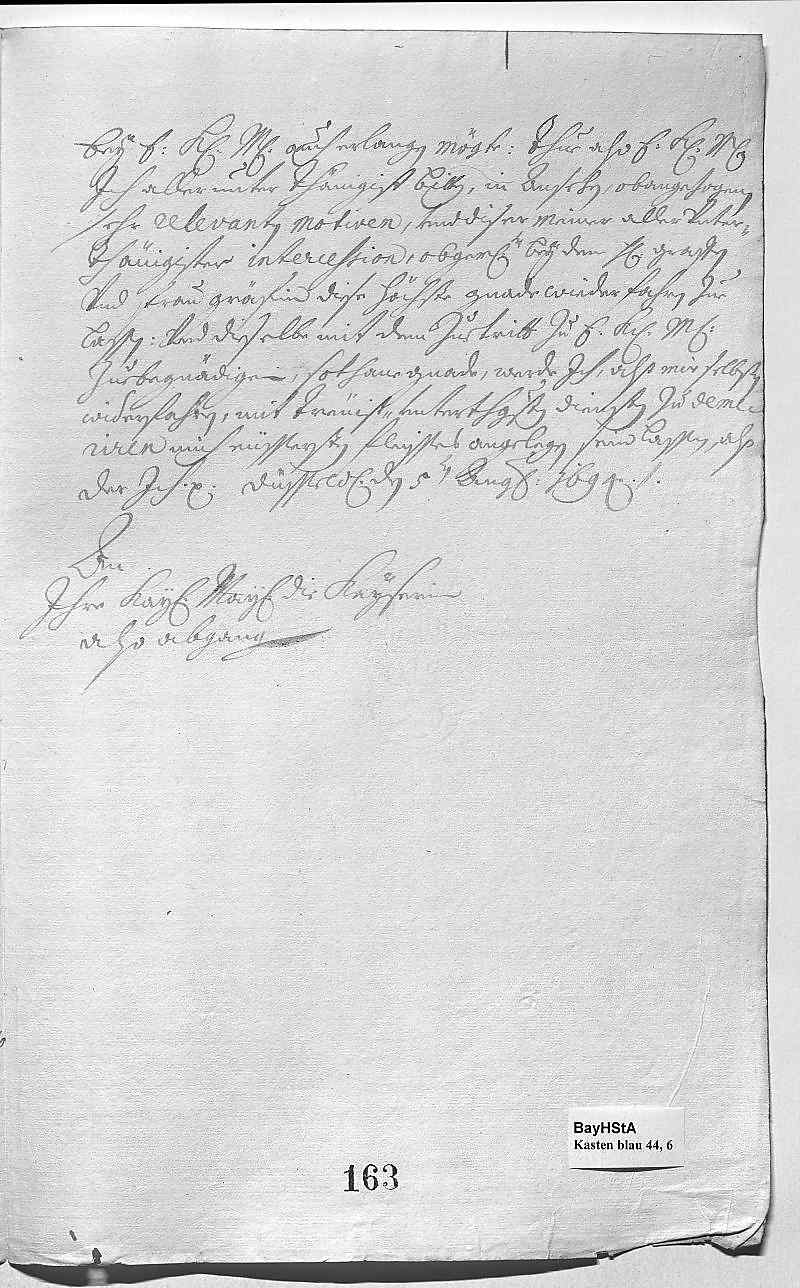 beÿ E: Kaÿ: Maÿ: auch erlangen mögte: Thue also E: Kaÿ: Maÿ:
Ich allerunter thänigist bitten, in Ansehen, obangezogenen
sehr relevanten motiven, und diser meiner aller Unter-
thänigister intercession, obgemelten beÿ den H: graffen
Und frau gräffin diese höchste gnade wiederfahren zue
lassen: Und dieselbe mit dem Zutritt zu E: Kaÿ: Maÿ:
Zue begnädigen, sothane gnade, werde Ich, alß mir selbsten
widerfahren, mit treüist, unterthgsten diensten zu deme-
riren mich eüssersten fleisses angelegen sein lassen, alß
der Ich. p. Düsseldf. den 5ten Augst: 1694./.
An
Ihre Kaÿ: Maÿ: die Keÿserin
also abgang
BayHStA
Kasten blau 44, 6
163